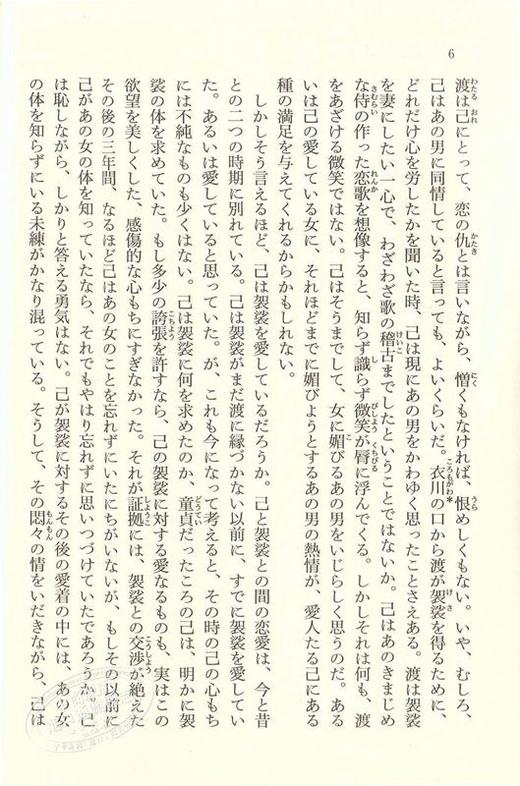 6
渡は己にとって、恋の仇とは言いながら、憎くもなければ、恨めしくもない。いや、むしろ、
己はあの男に同情していると言っても、よいくらいだ。衣川の口から渡が袈裟を得るために、
どれだけ心を労したかを聞いた時、己は現にあの男をかわゆく思ったことさえある。渡は袈裟
を妻にしたい一心で、わざわざ歌の稽古までしたということではないか。己はあのきまじめ
な侍の作った恋歌を想像すると、知らず識らず微笑が脣に浮んでくる。しかしそれは何も、渡
をあざける微笑ではない。己はそうまでして、女に媚びるあの男をいじらしく思うのだ。ある
いは己の愛している女に、それほどまでに媚びようとするあの男の熱情が、愛人たる己にある
種の満足を与えてくれるからかもしれない。
しかしそう言えるほど、己は袈裟を愛しているだろうか。己と袈裟との間の恋愛は、今と昔
との二つの時期に別れている。己は袈裟がまだ渡に縁づかない以前に、すでに袈裟を愛してい
た。あるいは愛していると思っていた。が、これも今になって考えると、その時の己の心もち
には不純なものも少くはない。己は袈裟に何を求めたのか、童貞だったころの己は、明かに袈
裟の体を求めていた。もし多少の誇張を許すなら、己の袈裟に対する愛なるものも、実はこの
欲望を美しくした、感傷的な心もちにすぎなかった。それが証拠には、袈裟との交渉が絶えた
その後の三年間、なるほど己はあの女のことを忘れずにいたにちがいないが、もしその以前に
己があの女の体を知っていたなら、それでもやはり忘れずに思いつづけていたであろうか。己
は恥しながら、しかりと答える勇気はない。己が袈裟に対するその後の愛着の中には、あの女
の体を知らずにいる未練がかなり混っている。そうして、その悶々の情をいだきながら、己は